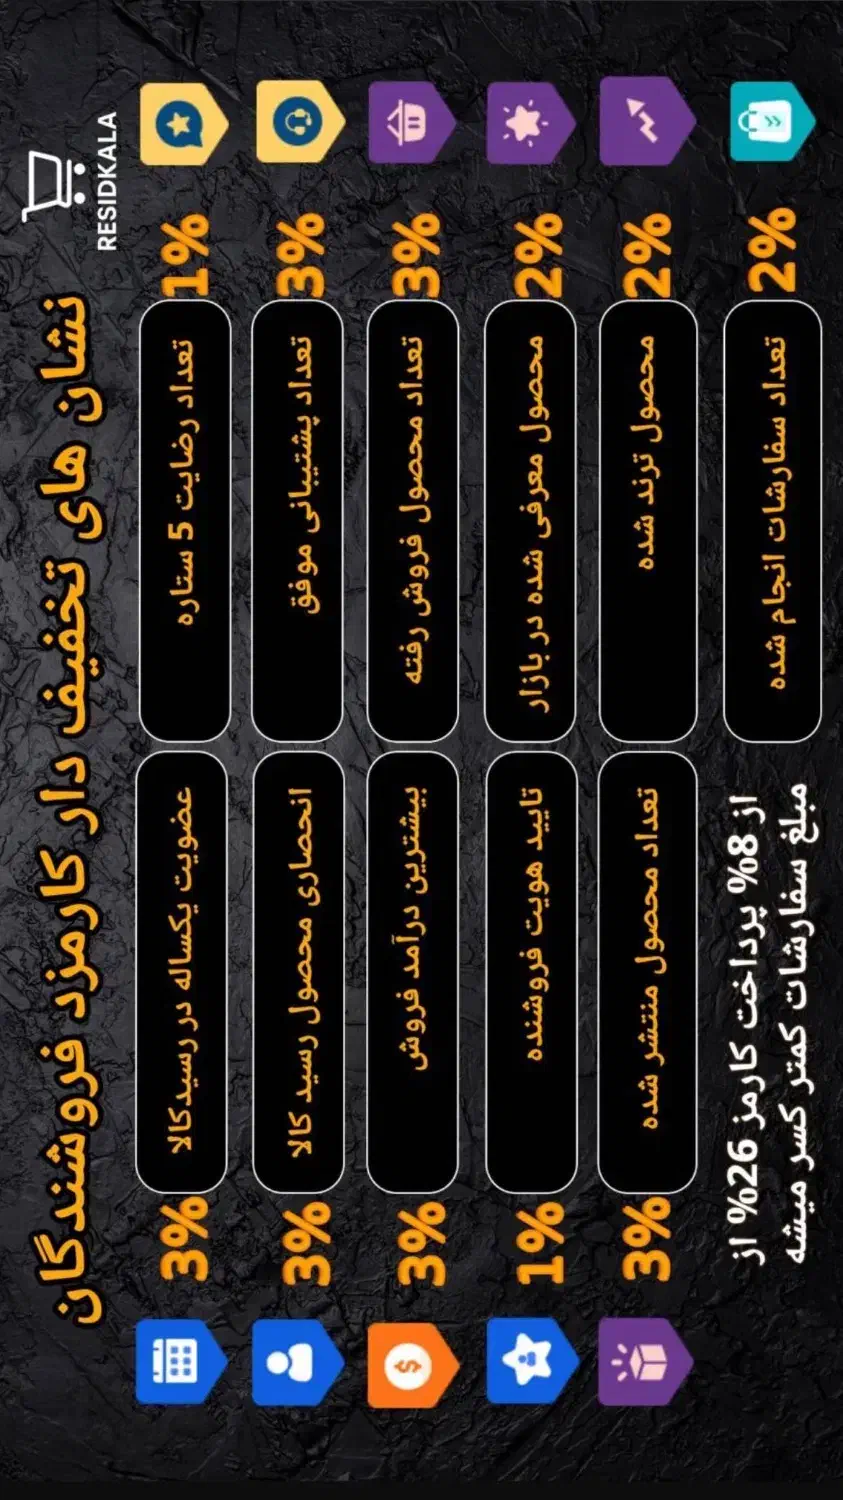 RESIDKALA
نشان های تخفیف دار کارمزد فروشندگان
1%
تعداد رضایت 5 ستاره
عضویت یکساله در رسیدکالا
3%
3%
تعداد پشتیبانی موفق
انحصاری محصول رسید کالا
3%
3%
تعداد محصول فروش رفته
بیشترین درآمد فروش
3%
2%
محصول معرفی شده در بازار
تایید هویت فروشنده
1%
2%
محصول ترند شده
تعداد محصول منتشر شده
3%
2%
تعداد سفارشات انجام شده
از 8% پرداخت کارمز 26% از
مبلغ سفارشات کمتر کسر میشه